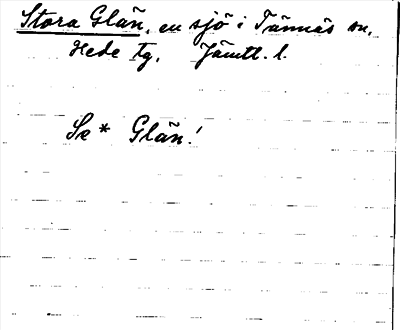 Stora Glän, en sjö i Tännäs sn,
Hede tg, Jämtl. l.
Se * Glän!